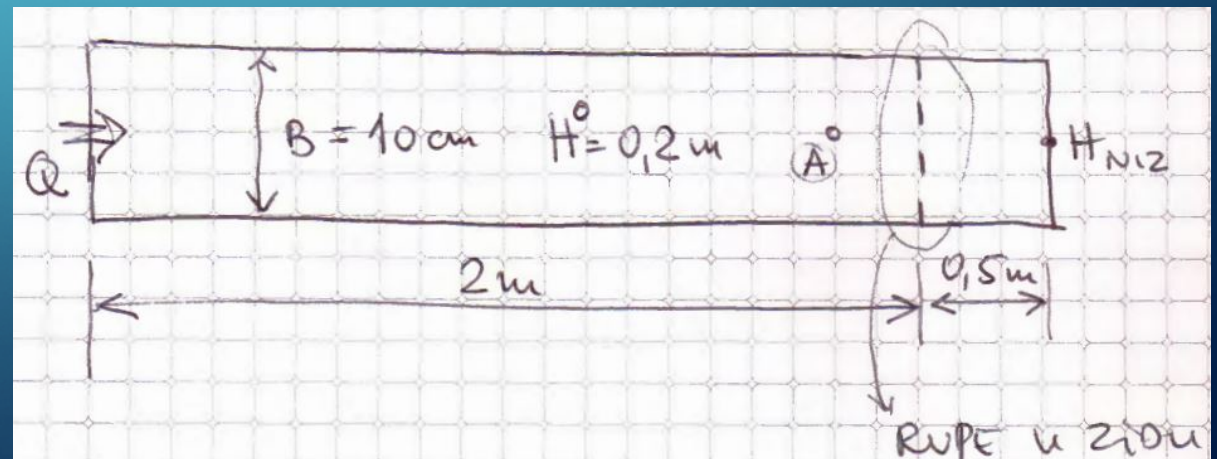 Q
B = 10 cm
H° = 0,2 m
A
H NIZ
2 m
0,5 m
RUPE U ZIDU